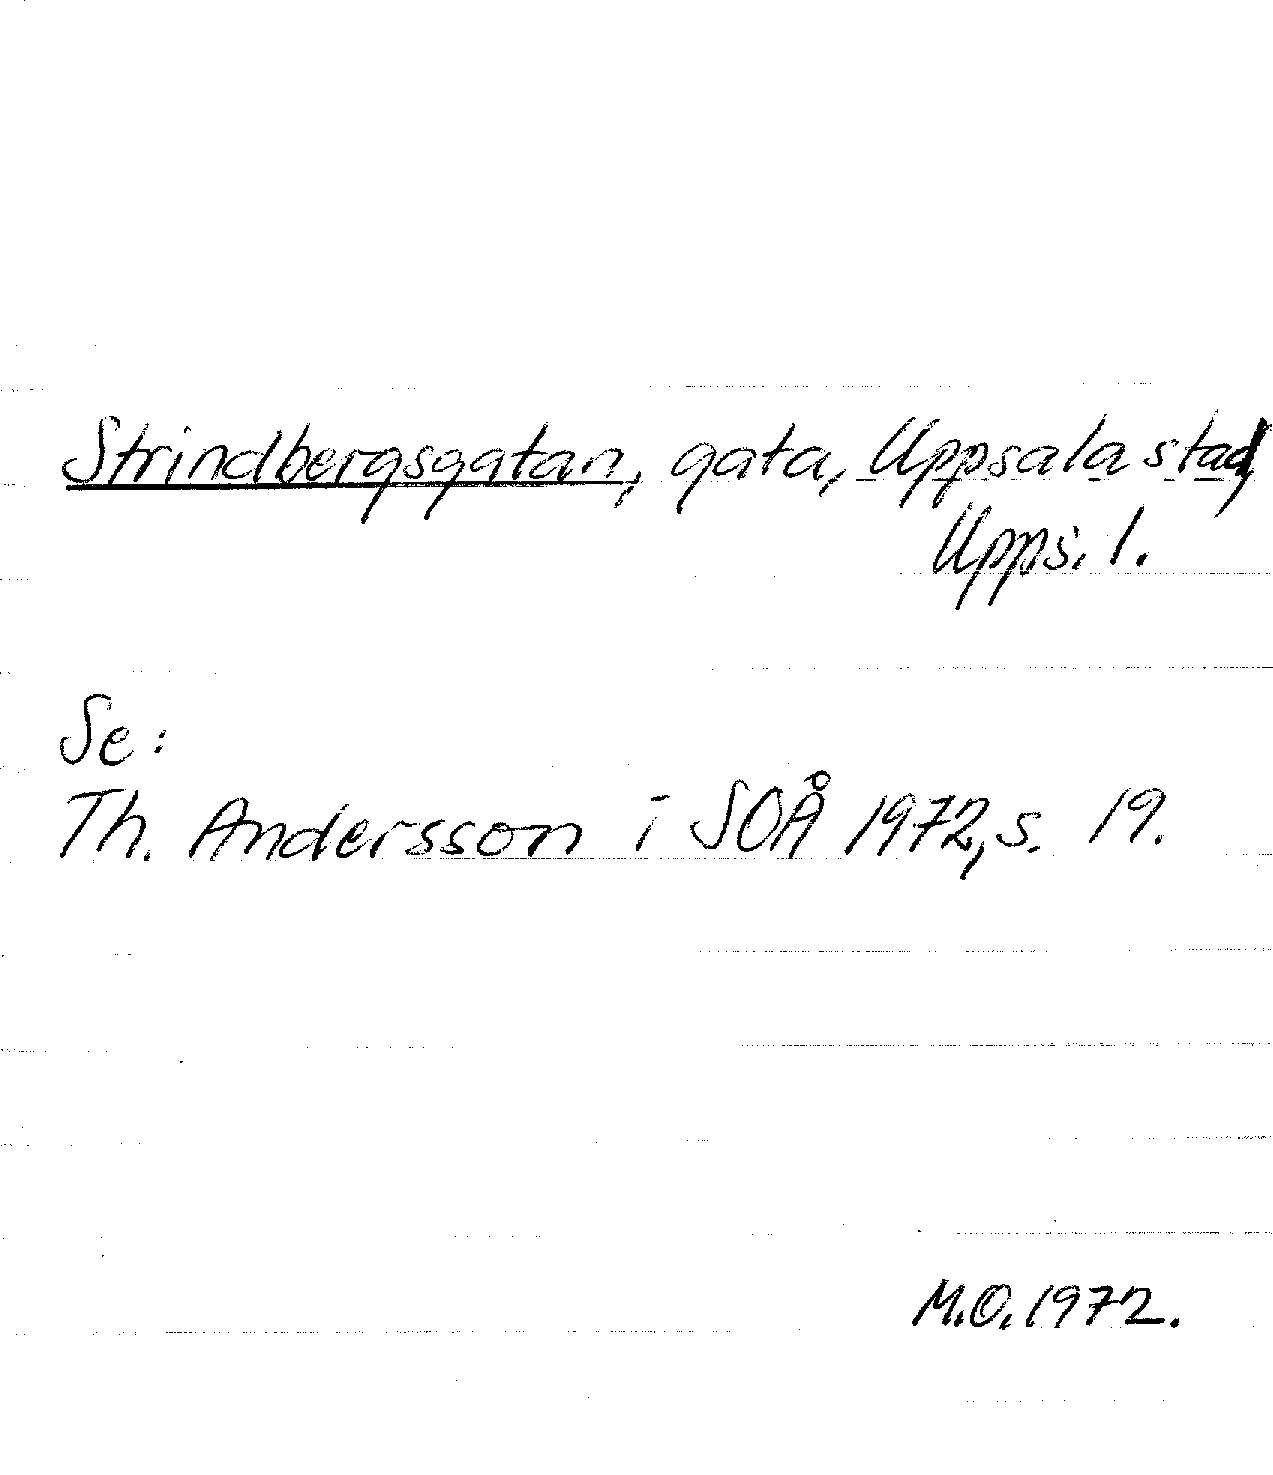 Strindbergsgatan, gata, Uppsala stad,
Upps. l.
Se:
Th. Andersson i SOÅ 1972, s. 19.
M.O. 1972.